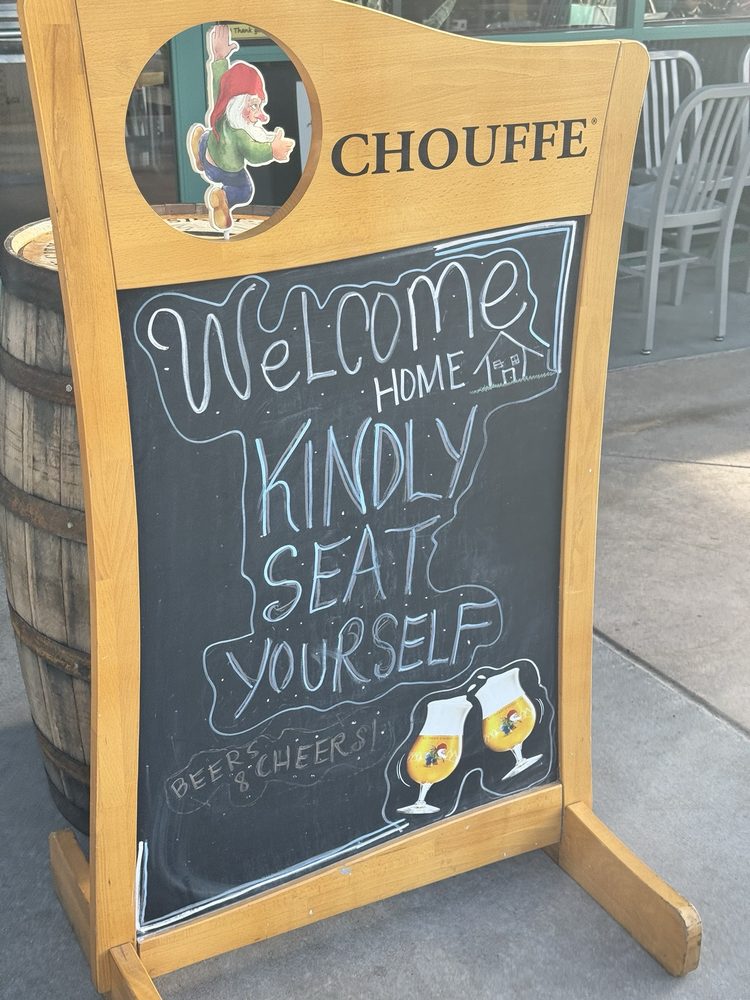 Thank y
CHOUFFE®
WeLCOme
HOME
KINDLY
SEAT
YOURSELF
BEERS
& CHEERS!